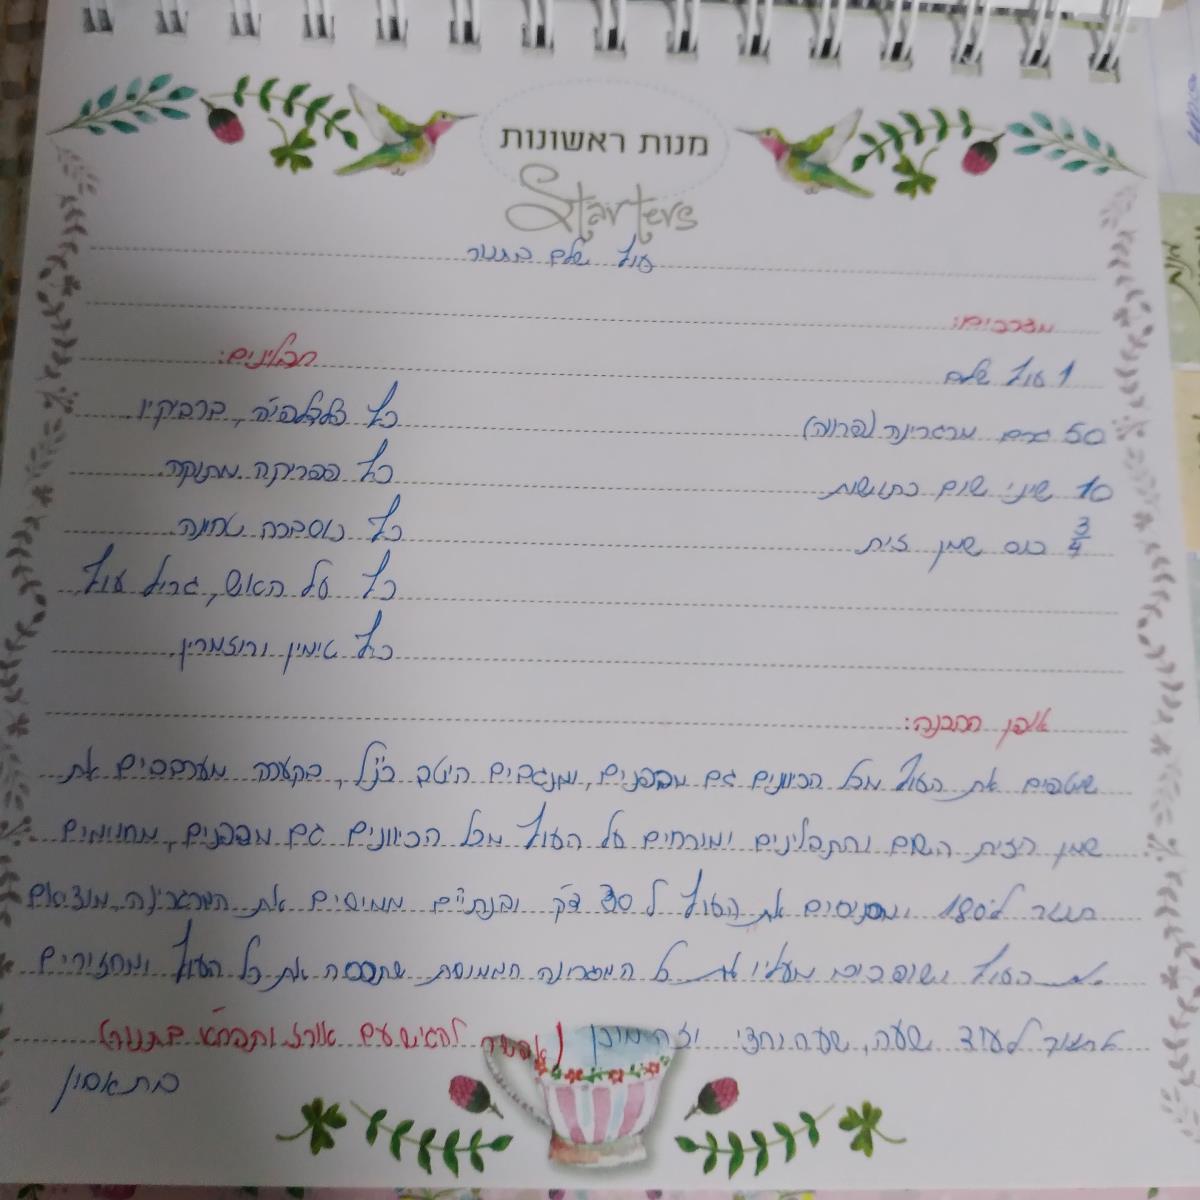 מנות ראשונות
Starters
עוף שלם בתנור
מצרכים:
תבלינים:
1 עוף שלם
כף צ'לצ'לפיה, ברביקיו
50 גרם מרגרינה (פרווה)
כף פפריקה מתוקה
10 שיני שום כתושות
כף כוסברה טחונה
3/4 כוס שמן זית
כף על האש, גריל עוף
כף טימין ורוזמרין
אופן ההכנה:
שוטפים את העוף מכל הכיוונים גם מבפנים, ומנגבים היטב כנ"ל, בקערה מערבבים את
שמן הזית השום והתבלינים ומורחים על העוף מכל הכיוונים גם מבפנים, מחממים
תנור ל°180 ומכניסים את העוף ל 30 דק' ובנתיים ממיסים את המרגרינה, מוציאים
את העוף ושופכים מעליו את כל המרגרינה המומסת שתכסה את כל העוף ומחזירים
לתנור לעוד שעה, שעה וחצי וזה מוכן (אפשר להגיש עם אורז ותפו"א בתנור)
בתאבון